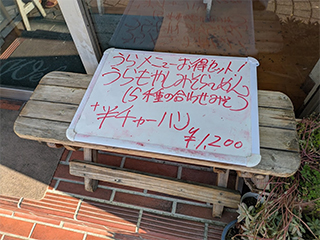 うらメニューお得セット!
うらもやしみそらーめん
(5種の合わせみそ)
+半チャーハン
¥1,200